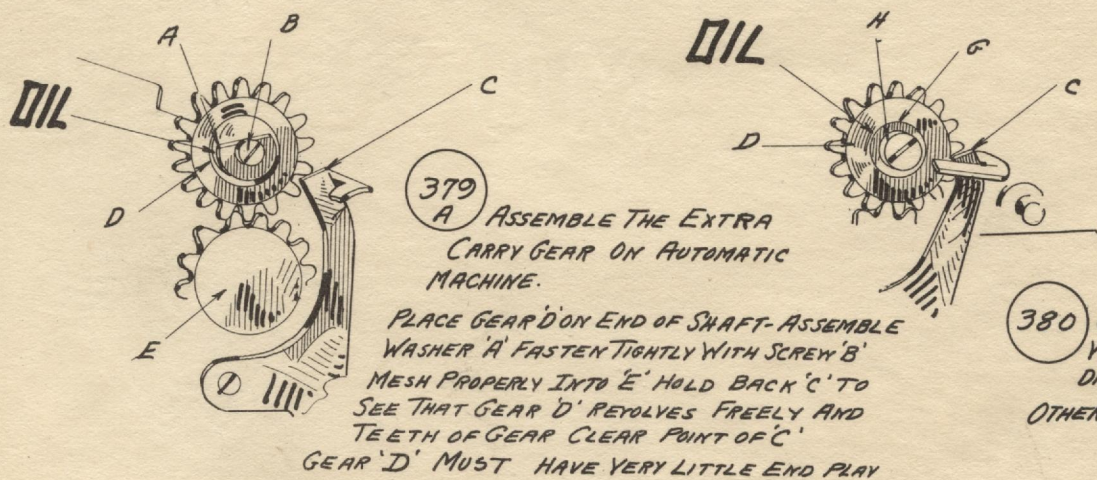 A
B
OIL
C
D
E
379
A
ASSEMBLE THE EXTRA
CARRY GEAR ON AUTOMATIC
MACHINE.
PLACE GEAR 'D' ON END OF SHAFT - ASSEMBLE
WASHER 'A' FASTEN TIGHTLY WITH SCREW 'B'
MESH PROPERLY INTO 'E' HOLD BACK 'C' TO
SEE THAT GEAR 'D' REVOLVES FREELY AND
TEETH OF GEAR CLEAR POINT OF 'C'
GEAR 'D' MUST HAVE VERY LITTLE END PLAY
OIL
H
G
C
D
380
OTHER